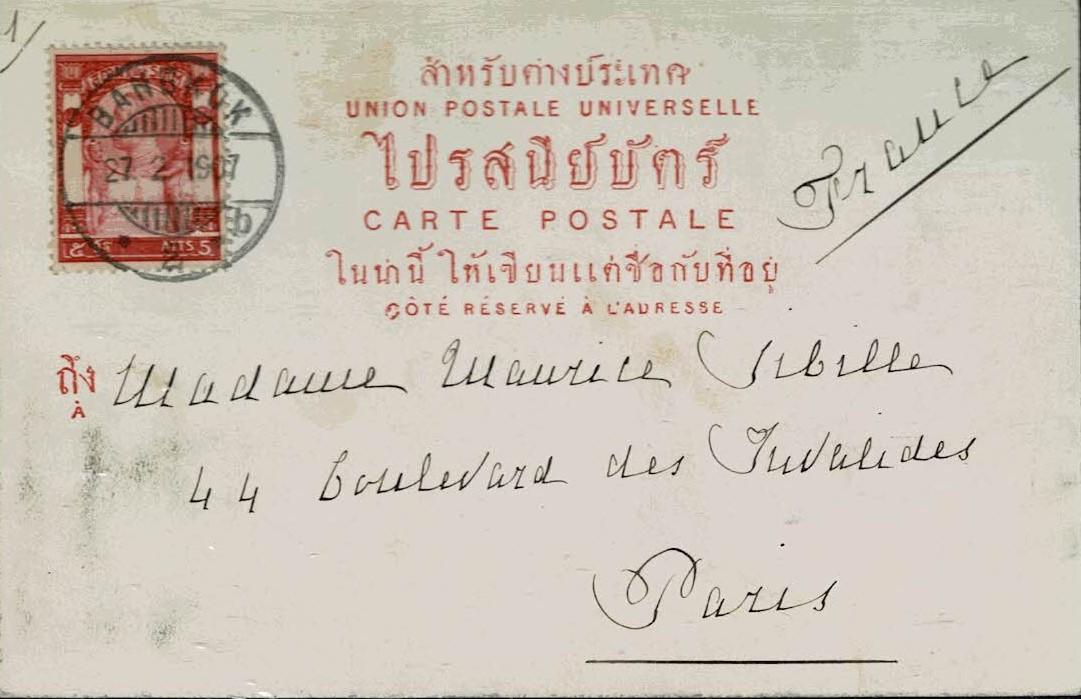 1/
BANGKOK
27. 2. 1907
2
ATTS 5
สำหรับต่างประเทศ
UNION POSTALE UNIVERSELLE
ไปรสนียบัตร์
CARTE POSTALE
ในน่านี้ ให้เขียนแต่ชื่อกับที่อยู่
CÔTÉ RÉSERVÉ À L'ADRESSE
France
ถึง Madame Maurice Sibille
À
44 boulevard des Invalides
Paris